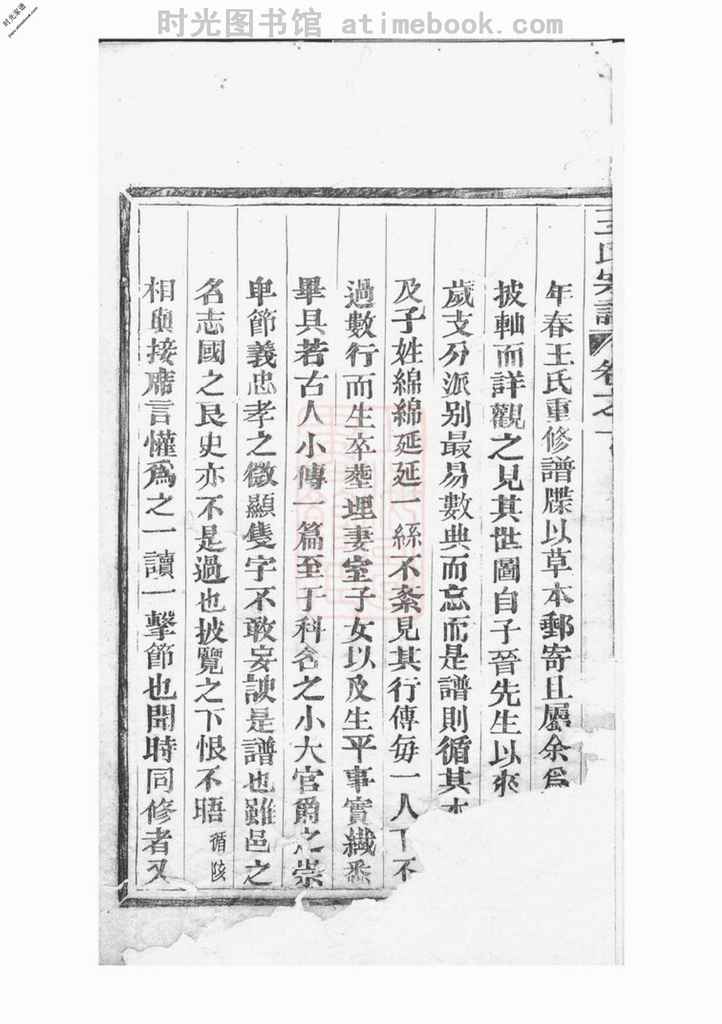 时光图书馆 atimebook.com
时光家谱
www.atimebook.com
王氏宗譜 卷之
年春王氏重修譜牒以草本郵寄且屬余爲
披軸而詳觀之見其世圖自子晉先生以來
歲支分派别最易數典而忘而是譜則循其本
及子姓綿綿延延一絲不紊見其行傳每一人下不
過數行而生卒塟埋妻室子女以及生平事實纎悉
畢具若古人小傳一篇至于科名之小大官爵之崇
卑節義忠孝之微顯隻字不敢妄諛是譜也雖邑之
名志國之良史亦不是過也披覽之下恨不晤循陔
相與接席言懽爲之一讀一擊節也聞時同修者又